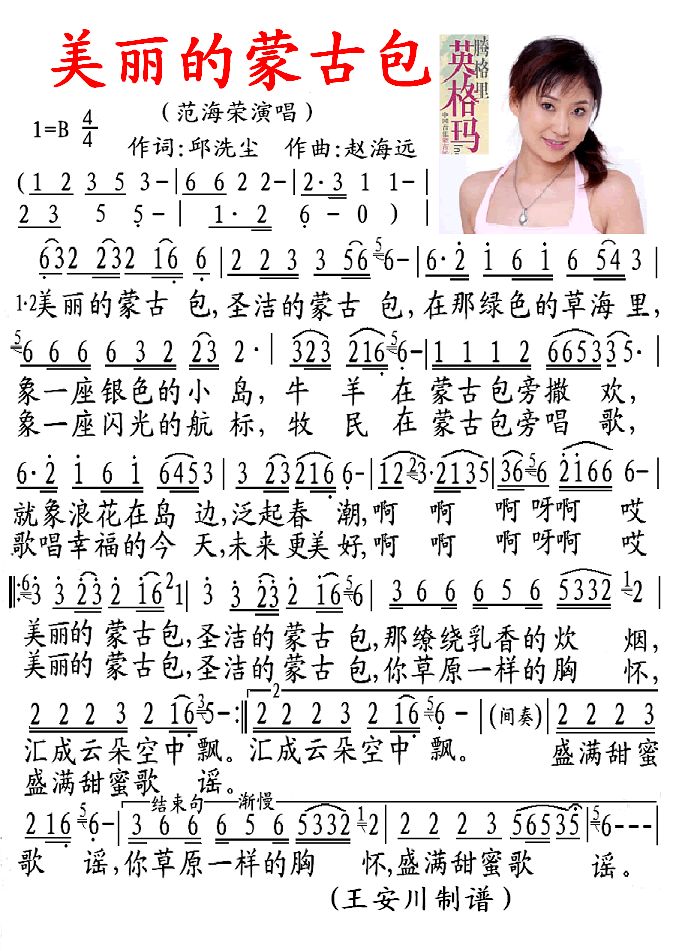 美丽的蒙古包
腾格里
英格玛
(范海荣演唱)
1=B 4/4
作词:邱洗尘 作曲:赵海远
(1 2 3 5 3-|6 6 2 2-|2·3 1 1-|
2 3 5 5-|1·2 6-0)|
632 232 16 6|2 2 3 3 56 5 6-|6·2 1 6 1 6 54 3|
1·2美丽的蒙古 包,圣洁的蒙古 包,在那绿色的草海 里,
5 6 6 6 6 3 2 23 2·|323 216 5 6-|1 1 1 2 66533 5·|
象一座银色的小 岛,牛 羊 在 蒙古包旁撒 欢,
象一座闪光的航 标,牧 民 在 蒙古包旁唱 歌,
6·2 1 6 1 6453|3 23216 6-|12 23·2135|36 5 6 2166 6-|
就象浪花在岛 边,泛起春 潮,啊 啊 啊 呀啊 哎
歌唱幸福的今 天,未来更美好,啊 啊 啊 呀啊 哎
‖:6 3 3 23 2 16 2 1|3 3 23 2 16 5 6-|3 6 6 6 5 6 5332 1 2|
美丽的 蒙古包,圣洁的蒙古 包,那缭绕乳香的炊 烟,
美丽的 蒙古包,圣洁的蒙古 包,你草原一样的胸 怀,
2 2 2 3 2 2 16 3 5-:‖2 2 2 2 3 2 2 16 5 6-|(间奏)|2 2 2 3
汇成云朵空中 飘。汇成云朵空中 飘。 盛满甜蜜
盛满甜蜜歌 谣。
结束句 渐慢
2 16 5 6-|3 6 6 6 5 6 5332 1 2|2 2 2 3 2 56535|5 6---|
歌 谣,你草原一样的胸 怀,盛满甜蜜歌 谣。
(王安川制谱)